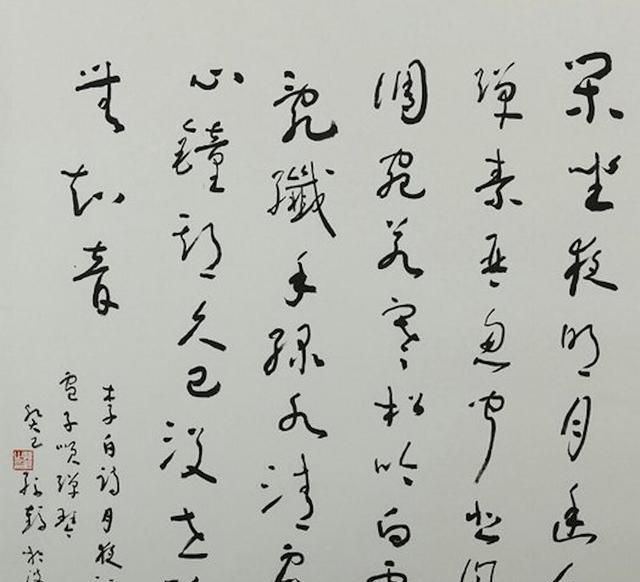 閑坐夜明月幽
彈素琴忽聞悲風
調宛若寒松吟白雪
亂纖手綠水清虛
心鐘期久已沒世
無知音
李白詩月夜
盧子順彈琴
癸巳孫鶴於